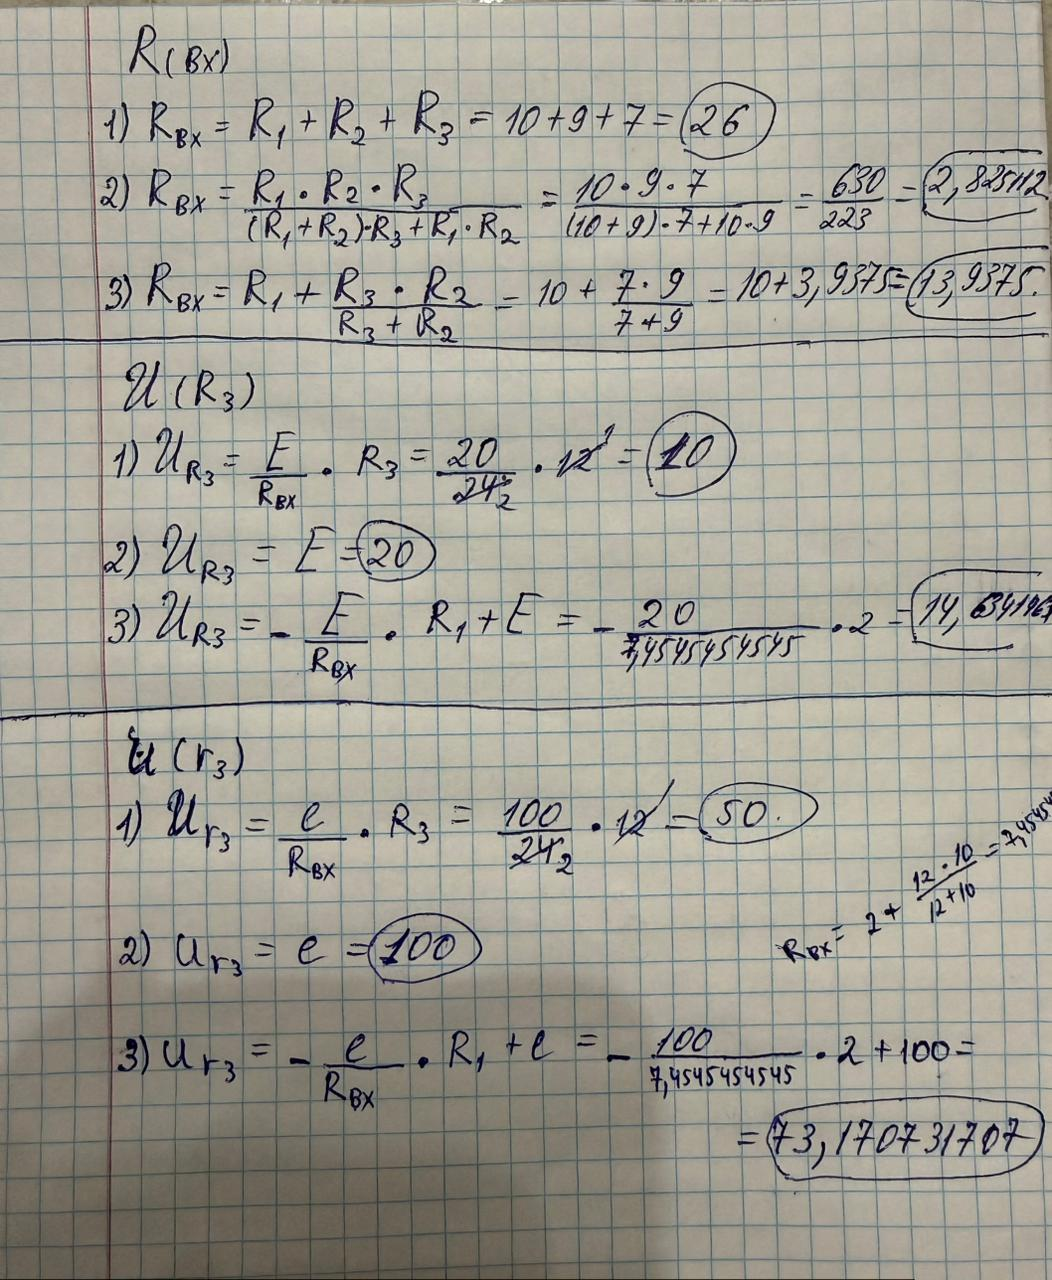 R(вх)
1) Rвх = R1 + R2 + R3 = 10+9+7 = 26
2) Rвх = R1 · R2 · R3 / (R1+R2)·R3+R1·R2 = 10·9·7 / (10+9)·7+10·9 = 630/223 = 2,825112
3) Rвх = R1 + R3 · R2 / R3 + R2 = 10 + 7·9 / 7+9 = 10+3,9375 = 13,9375.
U (R3)
1) UR3 = E/Rвх · R3 = 20/24 2 · 12 1 = 10
2) UR3 = E = 20
3) UR3 = - E/Rвх · R1 + E = - 20/7,45454545454545 · 2 = 14,6341463
U (r3)
1) Ur3 = e/Rвх · R3 = 100/24 2 · 12 = 50.
Rвх = 2 + 12·10 / 12+10 = 7,454545
2) Ur3 = e = 100
3) Ur3 = - e/Rвх · R1 + e = - 100/7,45454545454545 · 2 + 100 =
= 73,170731707